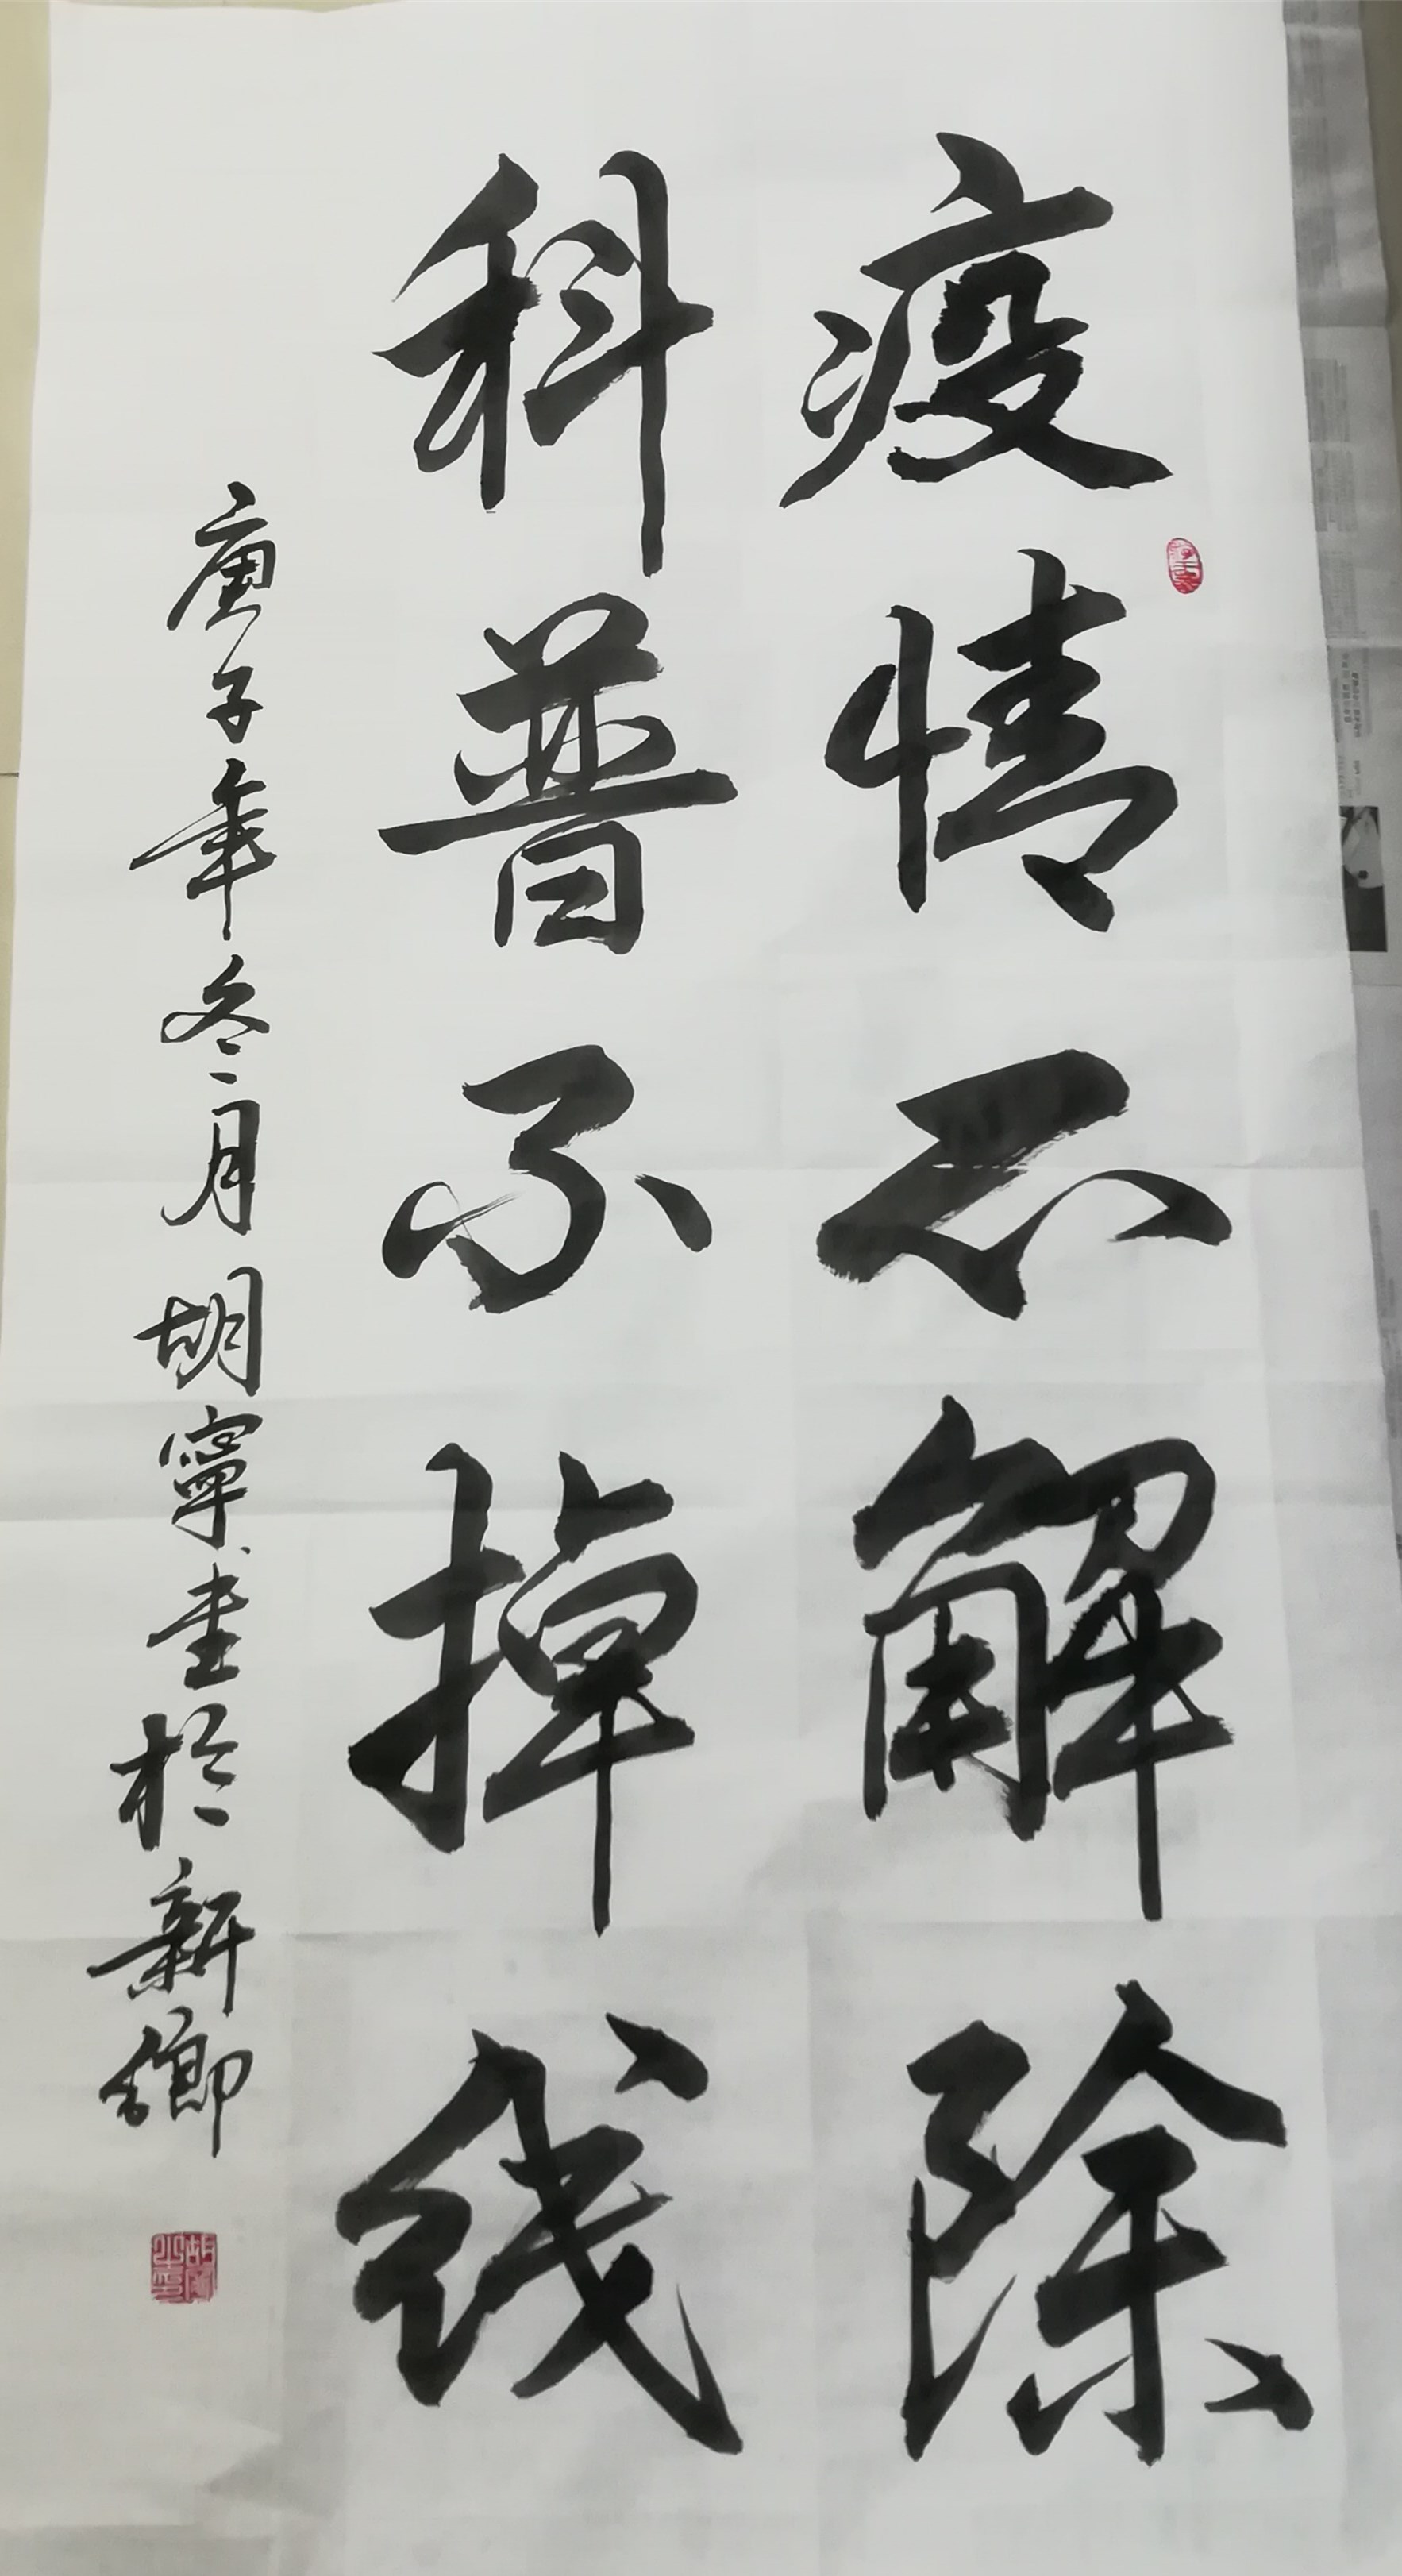 疫情不解除
科普不掉线
庚子年冬月胡寧書於新鄉